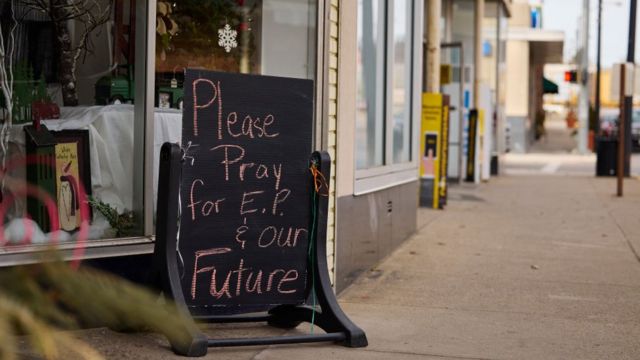 Please
Pray
for E.P.
& our
Future